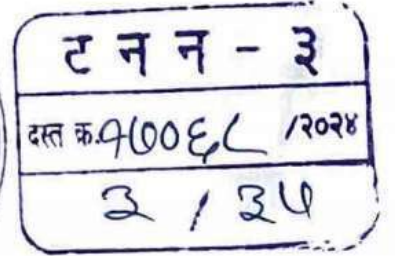 ट न न - ३
दस्त क्र.१७०६८ /२०२४
३ / ३५